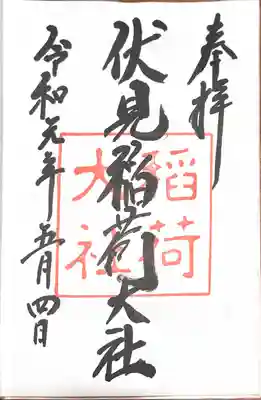 奉拝
伏見稲荷大社
令和元年五月四日
稲荷
大社